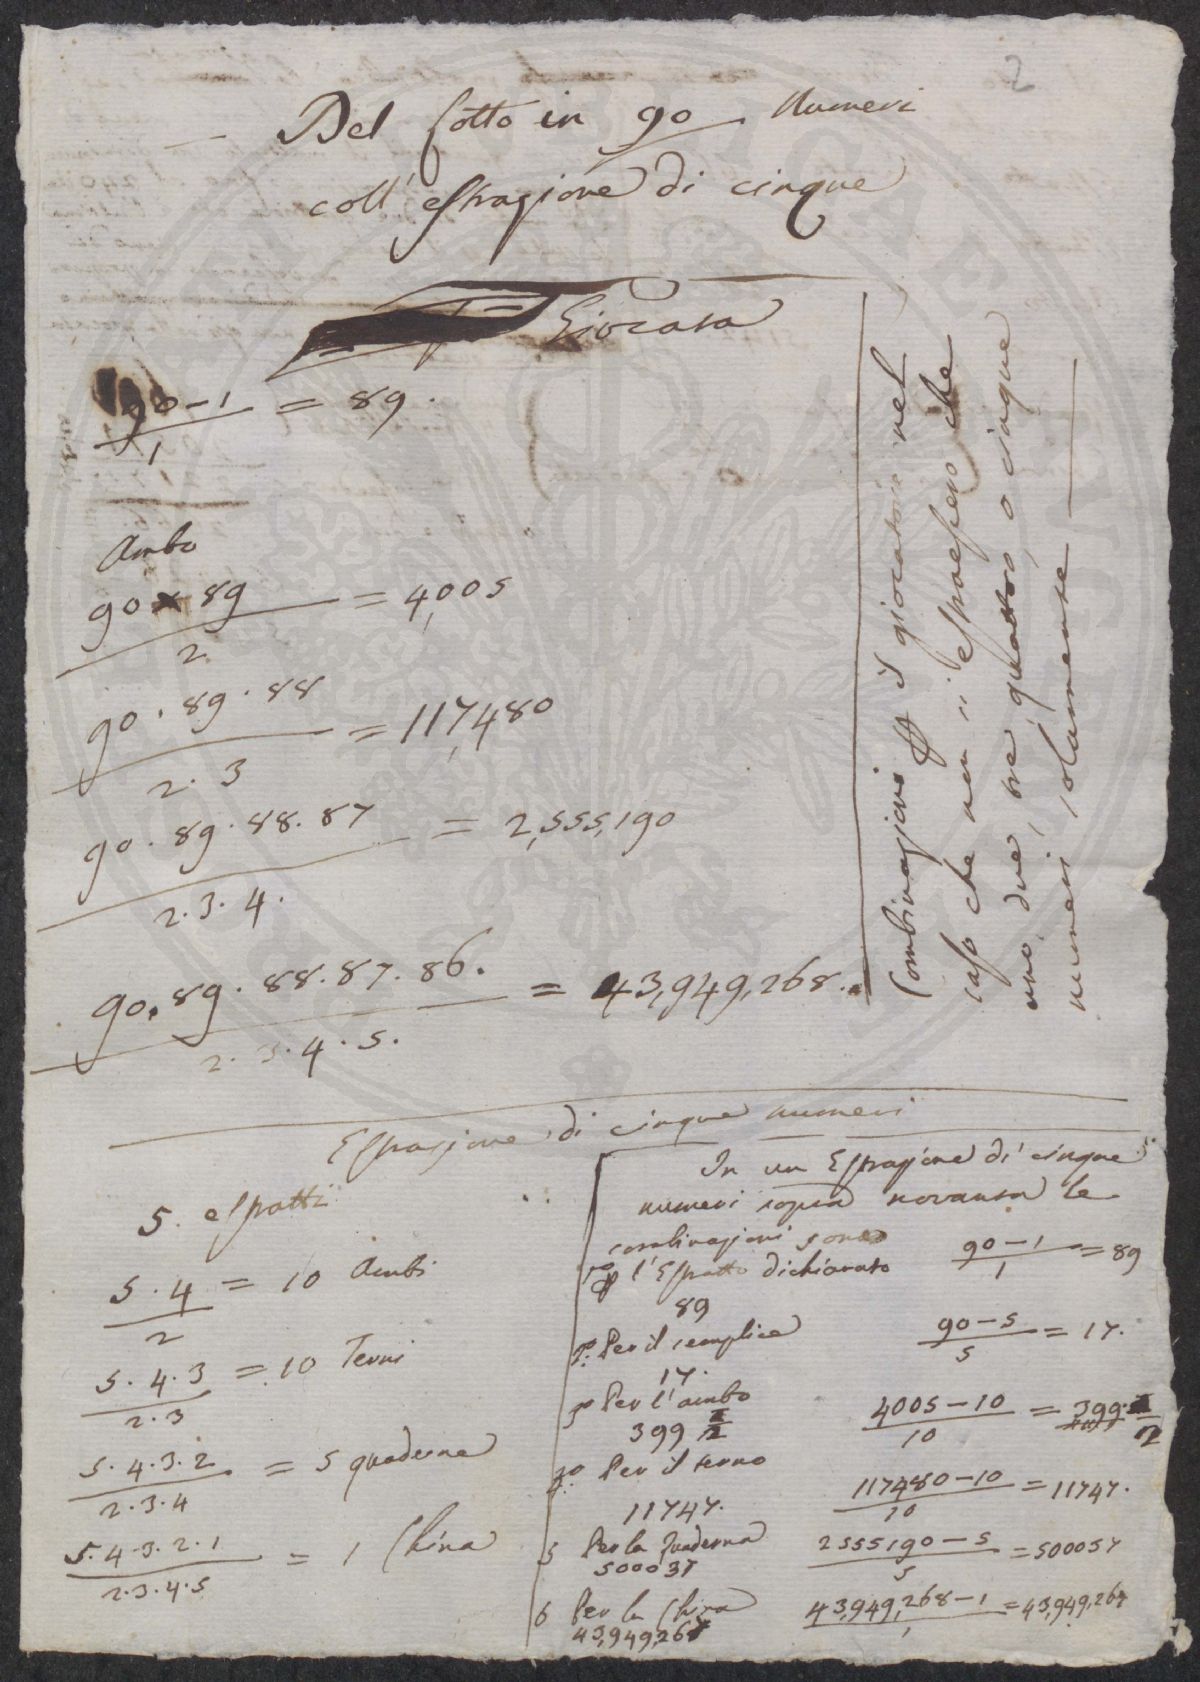 2
Del Lotto in 90 Numeri
coll' estrazione di cinque
Giocata
90-1 / 1 = 89.
Ambo
90 x 89 / 2 = 4,005
90 . 89 . 88 / 2 . 3 = 117,480
90 . 89 . 88 . 87 / 2 . 3 . 4. = 2,555,190
90 . 89 . 88 . 87 . 86. / 2 . 3 . 4 . 5. = 43,949,268.
Combinazioni p il giocatore nel
caso che non si estraessero che
uno, due, tre quattro, o cinque
numeri solamente
Estrazione di cinque numeri
5. estratti
5 . 4 / 2 = 10 Ambi
5 . 4 . 3 / 2 . 3 = 10 Terni
5 . 4 . 3 . 2 / 2 . 3 . 4 = 5 quaderne
5 . 4 . 3 . 2 . 1 / 2 . 3 . 4 . 5 = 1 China
In un Estrazione di cinque
numeri sopra novanta le
combinazioni sono
1º p l'Estratto dichiarato 90-1 / 1 = 89
89
2º Per il semplice 90-5 / 5 = 17.
17.
3º Per l'ambo 4005-10 / 10 = 399 1/2
399 1/2
4º Per il terno 117480-10 / 10 = 11747.
11747.
5 Per la Quaderna 2555190-5 / 5 = 500037
500037
6 Per la China 43,949,268-1 / 1 = 43,949,267
43,949,267